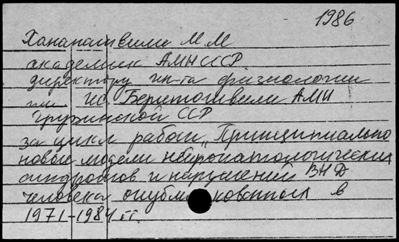 1986
Хананашвили М.М
академик АМНСССР.
директору ин-та физиологии
им. ИС. Бериташвили АМН
Грузинской ССР
за цикл работ „Принципиально
новые модели нейропатологических
синдромов и нарушений ВНД
человека опубликованных в
1971-1984 гг.